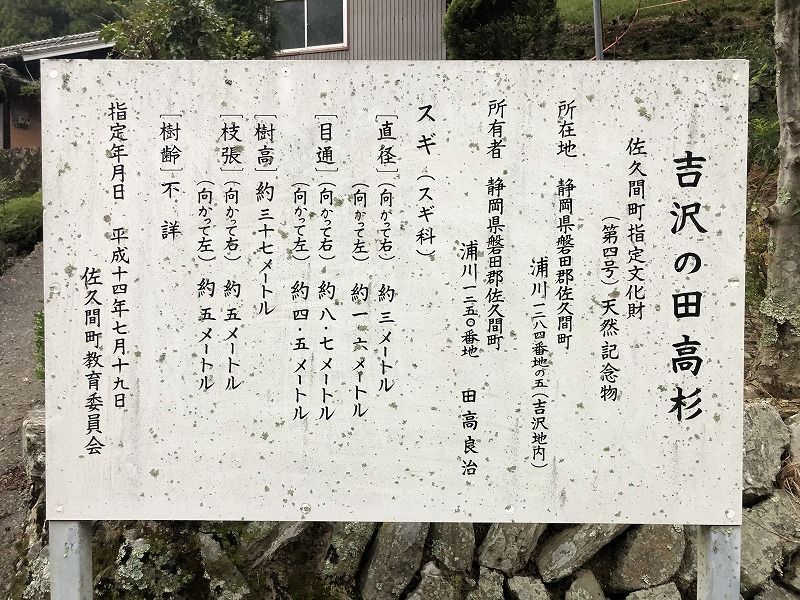 吉沢の田高杉
佐久間町指定文化財
(第四号)天然記念物
所在地 静岡県磐田郡佐久間町
浦川一二八四番地の五(吉沢地内)
所有者 静岡県磐田郡佐久間町
浦川一二五〇番地 田高良治
スギ(スギ科)
[直径](向かって右) 約三メートル
(向かって左) 約一・六メートル
[目通](向かって右) 約八・七メートル
(向かって左) 約四・五メートル
[樹高]約三十七メートル
[枝張](向かって右) 約五メートル
(向かって左) 約五メートル
[樹齢]不詳
指定年月日 平成十四年七月十九日
佐久間町教育委員会